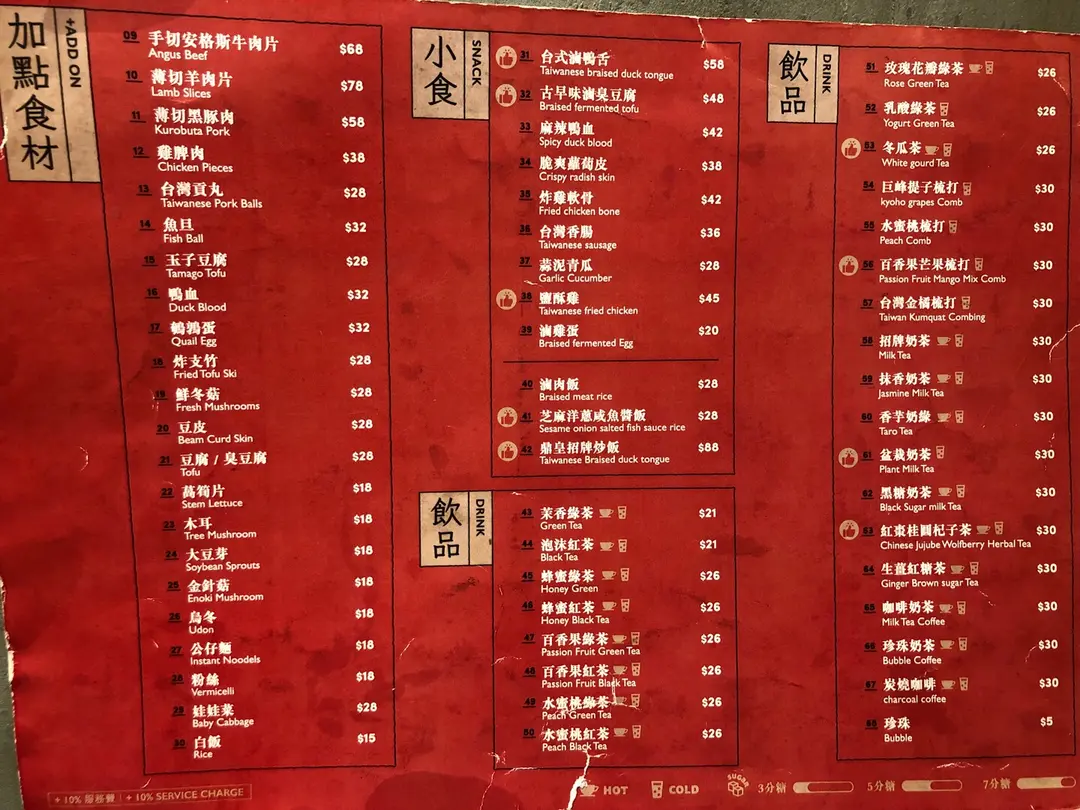 加點食材
+ADD ON
09 手切安格斯牛肉片 $68
Angus Beef
10 薄切羊肉片 $78
Lamb Slices
11 薄切黑豚肉 $58
Kurobuta Pork
12 雞脾肉 $38
Chicken Pieces
13 台灣貢丸 $28
Taiwanese Pork Balls
14 魚旦 $32
Fish Ball
15 玉子豆腐 $28
Tamago Tofu
16 鴨血 $32
Duck Blood
17 鵪鶉蛋 $32
Quail Egg
18 炸支竹 $28
Fried Tofu Ski
19 鮮冬菇 $28
Fresh Mushrooms
20 豆皮 $28
Beam Curd Skin
21 豆腐 / 臭豆腐 $28
Tofu
22 萵筍片 $18
Stem Lettuce
23 木耳 $18
Tree Mushroom
24 大豆芽 $18
Soybean Sprouts
25 金針菇 $18
Enoki Mushroom
26 烏冬 $18
Udon
27 公仔麵 $18
Instant Noodels
28 粉絲 $18
Vermicelli
29 娃娃菜 $28
Baby Cabbage
30 白飯 $15
Rice
+ 10% 服務費 | + 10% SERVICE CHARGE
小食
SNACK
31 台式滷鴨舌 $58
Taiwanese braised duck tongue
32 古早味滷臭豆腐 $48
Braised fermented tofu
33 麻辣鴨血 $42
Spicy duck blood
34 脆爽蘿蔔皮 $38
Crispy radish skin
35 炸雞軟骨 $42
Fried chicken bone
36 台灣香腸 $36
Taiwanese sausage
37 蒜泥青瓜 $28
Garlic Cucumber
38 鹽酥雞 $45
Taiwanese fried chicken
39 滷雞蛋 $20
Braised fermented Egg
40 滷肉飯 $28
Braised meat rice
41 芝麻洋蔥咸魚醬飯 $28
Sesame onion salted fish sauce rice
42 鼎皇招牌炒飯 $88
Taiwanese Braised duck tongue
飲品
DRINK
43 茉香綠茶 $21
Green Tea
44 泡沫紅茶 $21
Black Tea
45 蜂蜜綠茶 $26
Honey Green
46 蜂蜜紅茶 $26
Honey Black Tea
47 百香果綠茶 $26
Passion Fruit Green Tea
48 百香果紅茶 $26
Passion Fruit Black Tea
49 水蜜桃綠茶 $26
Peach Green Tea
50 水蜜桃紅茶 $26
Peach Black Tea
飲品
DRINK
51 玫瑰花瓣綠茶 $26
Rose Green Tea
52 乳酸綠茶 $26
Yogurt Green Tea
53 冬瓜茶 $26
White gourd Tea
54 巨峰提子梳打 $30
kyoho grapes Comb
55 水蜜桃梳打 $30
Peach Comb
56 百香果芒果梳打 $30
Passion Fruit Mango Mix Comb
57 台灣金橘梳打 $30
Taiwan Kumquat Combing
58 招牌奶茶 $30
Milk Tea
59 抹香奶茶 $30
Jasmine Milk Tea
60 香芋奶綠 $30
Taro Tea
61 盆栽奶茶 $30
Plant Milk Tea
62 黑糖奶茶 $30
Black Sugar milk Tea
63 紅棗桂圓杞子茶 $30
Chinese Jujube Wolfberry Herbal Tea
64 生薑紅糖茶 $30
Ginger Brown sugar Tea
65 咖啡奶茶 $30
Milk Tea Coffee
66 珍珠奶茶 $30
Bubble Coffee
67 炭燒咖啡 $30
charcoal coffee
68 珍珠 $5
Bubble
HOT COLD SUGAR 3分糖 5分糖 7分糖